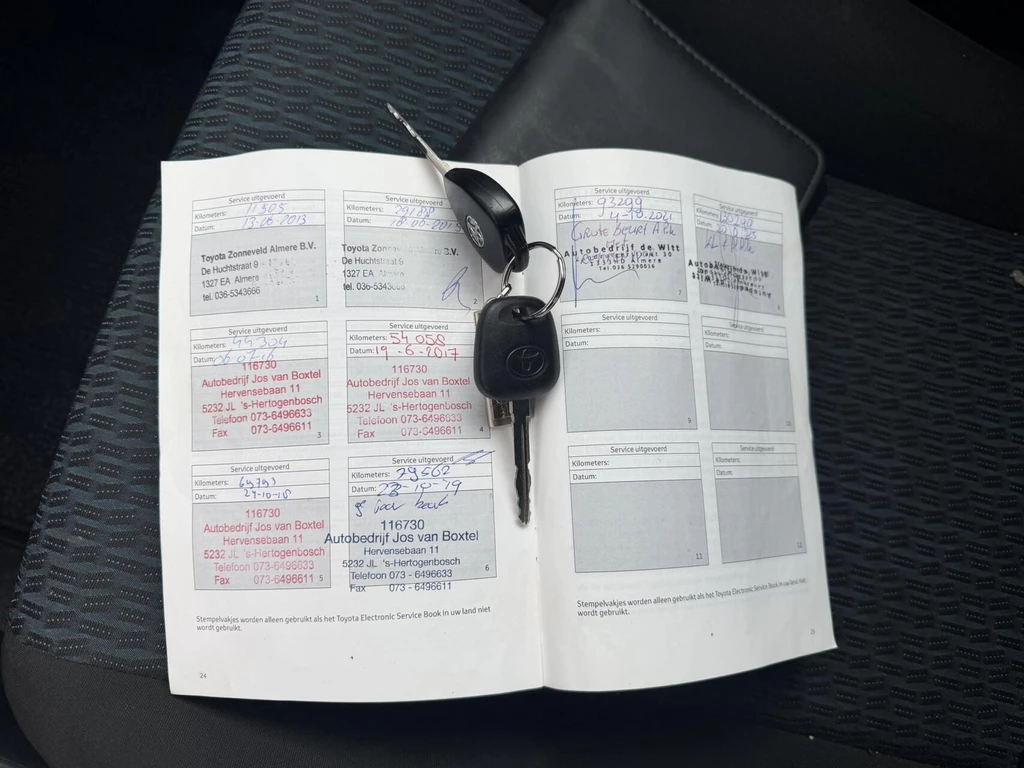 Service uitgevoerd
Kilometers: 11505
Datum: 13-06-2013
Toyota Zonneveld Almere B.V.
De Huchtstraat 9
1327 EA Almere
tel. 036-5343666
1
Service uitgevoerd
Kilometers:
Datum:
Toyota B.V.
De Huchtstraat 9
1327 EA
tel. 036-5343666
2
Service uitgevoerd
Kilometers: 44304
Datum: 06 07 16
116730
Autobedrijf Jos van Boxtel
Hervensebaan 11
5232 JL 's-Hertogenbosch
Telefoon 073-6496633
Fax 073-6496611
3
Service uitgevoerd
Kilometers: 54 058
Datum: 19-6-2017
116730
Autobedrijf Jos van Boxtel
Hervensebaan 11
5232 JL 's-Hertogenbosch
Telefoon 073-6496633
Fax 073-6496611
4
Service uitgevoerd
Kilometers:
Datum: 24-10-18
116730
Autobedrijf Jos van Boxtel
Hervensebaan 11
5232 JL 's-Hertogenbosch
Telefoon 073-6496633
Fax 073-6496611
5
Service uitgevoerd
Kilometers: 79562
Datum: 23-10-'19
116730
Autobedrijf Jos van Boxtel
Hervensebaan 11
5232 JL 's-Hertogenbosch
Telefoon 073 - 6496633
Fax 073 - 6496611
6
Stempelvakjes worden alleen gebruikt als het Toyota Electronic Service Book in uw land niet
wordt gebruikt.
24
Service uitgevoerd
Kilometers: 93299
Datum: 4-10-2021
Grote Beurt APK
Autobedrijf de Witt
Almere
7
Service uitgevoerd
Kilometers:
Datum:
8
Service uitgevoerd
Kilometers:
Datum:
9
Service uitgevoerd
Kilometers:
Datum:
10
Service uitgevoerd
Kilometers:
Datum:
11
Service uitgevoerd
Kilometers:
Datum:
12
Stempelvakjes worden alleen gebruikt als het Toyota Electronic Service Book in uw land niet
wordt gebruikt.
25